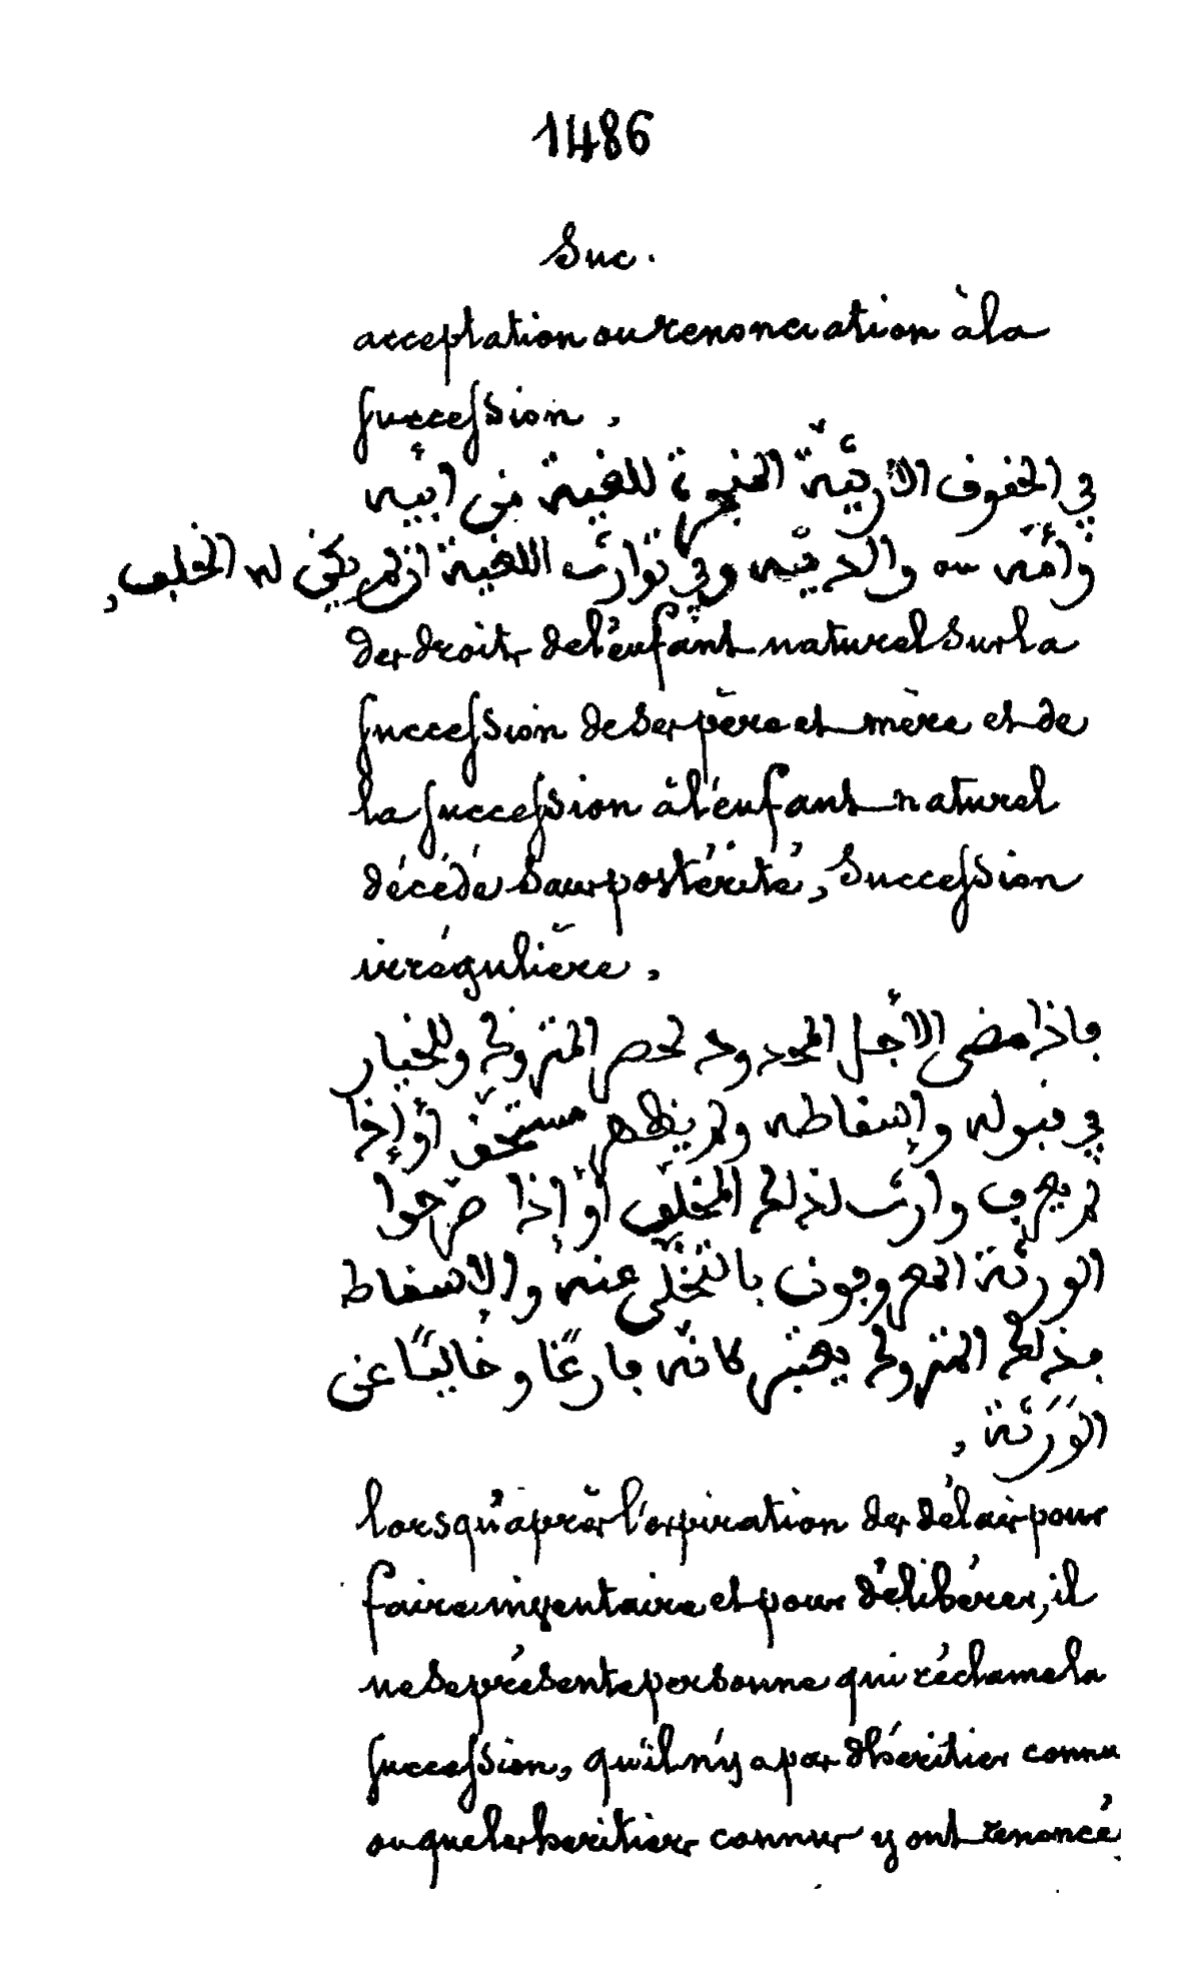 1486
Suc.
acceptation ou renonciation à la
succession.
في الحقوق الإرثيّة المنجرة للقيه من ابيه
وأمّه والديّه وفي توارث اللقية ان لم يكن له الخلف,
des droits de l'enfant naturel sur la
succession de ses père et mère et de
la succession à l'enfant naturel
décédé sans postérité, succession
irrégulière.
فاذا مضى الأجل المحدود لحصر المتروك وللخيار
في قبوله وإسقاطه ولم يظهر مستحق أو إذا
لم يعرف وارث لذلك المخلّف أو إذا صرّحوا
الورثة المعروفون بالتّخلّي عنه والإسقاط
فذلك المتروك يعتبر كانّه فارغًا وخاليًا عن
الوَرَثة,
lorsqu'après l'expiration des délais pour
faire inventaire et pour délibérer, il
ne se présente personne qui réclame la
succession, qu'il n'y a pas d'héritier connu
ou que les heritiers connus y ont renoncé